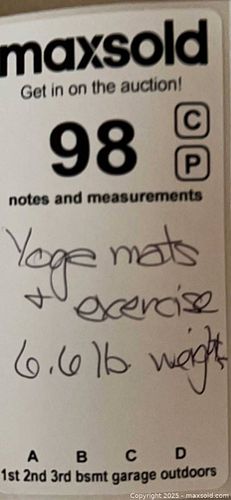 maxsold
Get in on the auction!
98
C
P
notes and measurements
Yoga mats
+ exercise
6.6 lb weights
A B C D
1st 2nd 3rd bsmt garage outdoors
Copyright © 2025 - maxsold.com